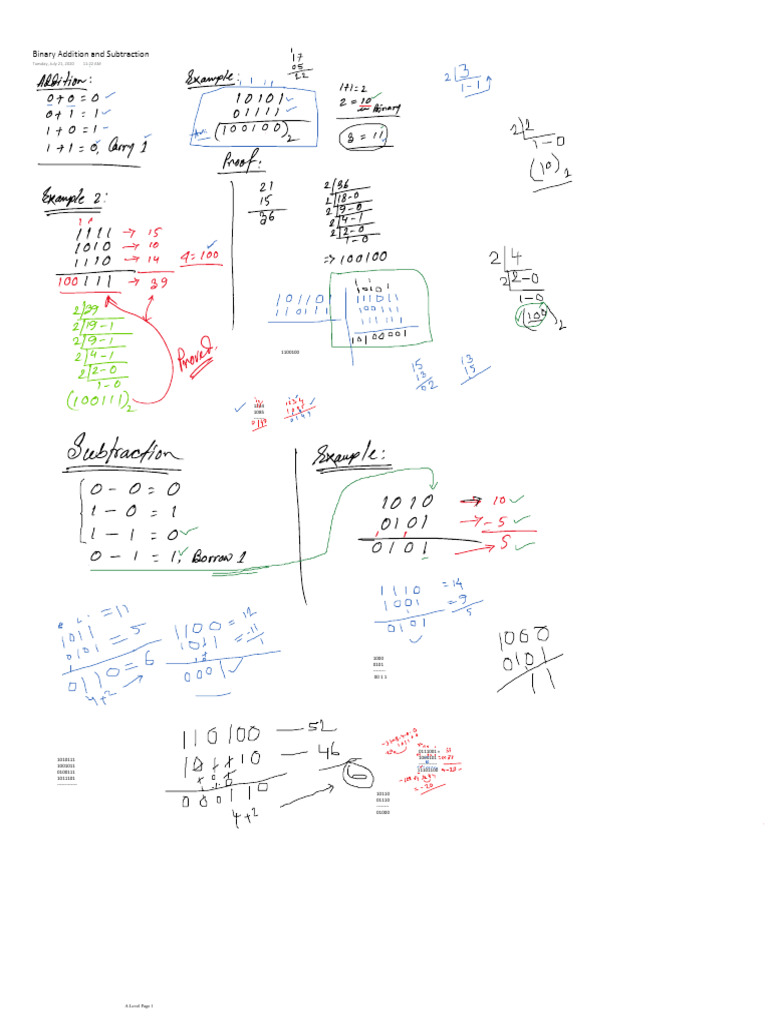 Binary Addition and Subtraction
Tuesday, July 21, 2020
Addition:
0 + 0 = 0
0 + 1 = 1
1 + 0 = 1
1 + 1 = 0, Carry 1
Example:
10101
01111
(100100)2
17
05
22
1+1=2
2 = 10
in Binary
3 = 11
2 3
1-1
2 2
1-0
(10)2
Proof:
21
15
36
2 36
2 18-0
2 9-0
2 4-1
2 2-0
1-0
=> 100100
Example 2:
1111 → 15
1010 → 10
1110 → 14
100111 → 39
4=100
2 39
2 19-1
2 9-1
2 4-1
2 2-0
1-0
(100111)2
Proved.
2 4
2 2-0
1-0
(100)2
101101
110111
10101
111011
100111
111111
10100001
1100100
15
13
02
13
15
Subtraction
0 - 0 = 0
1 - 0 = 1
1 - 1 = 0
0 - 1 = 1, Borrow 1
Example:
1010 → 10
0101 → -5
0101 → 5
1011 = 11
0101 = 5
0110 = 6
4+2
1100 = 12
1011 = -11
0001
1
1110 = 14
1001 = -9
0101
5
1000
0101
0011
1000
0101
11
110100 — 52
— 46
000110
6
4+2
1010111
1001011
0100111
1011101
10110
01110
01000
A-Level Page 1